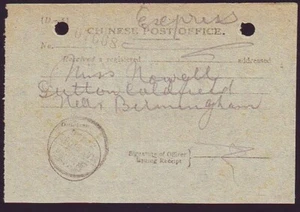 Express
CHINESE POST OFFICE.
No.
Received a registered addressed:
Miss Nowell
Sutton Coldfield
Near Birmingham
Signature of Officer
issuing Receipt